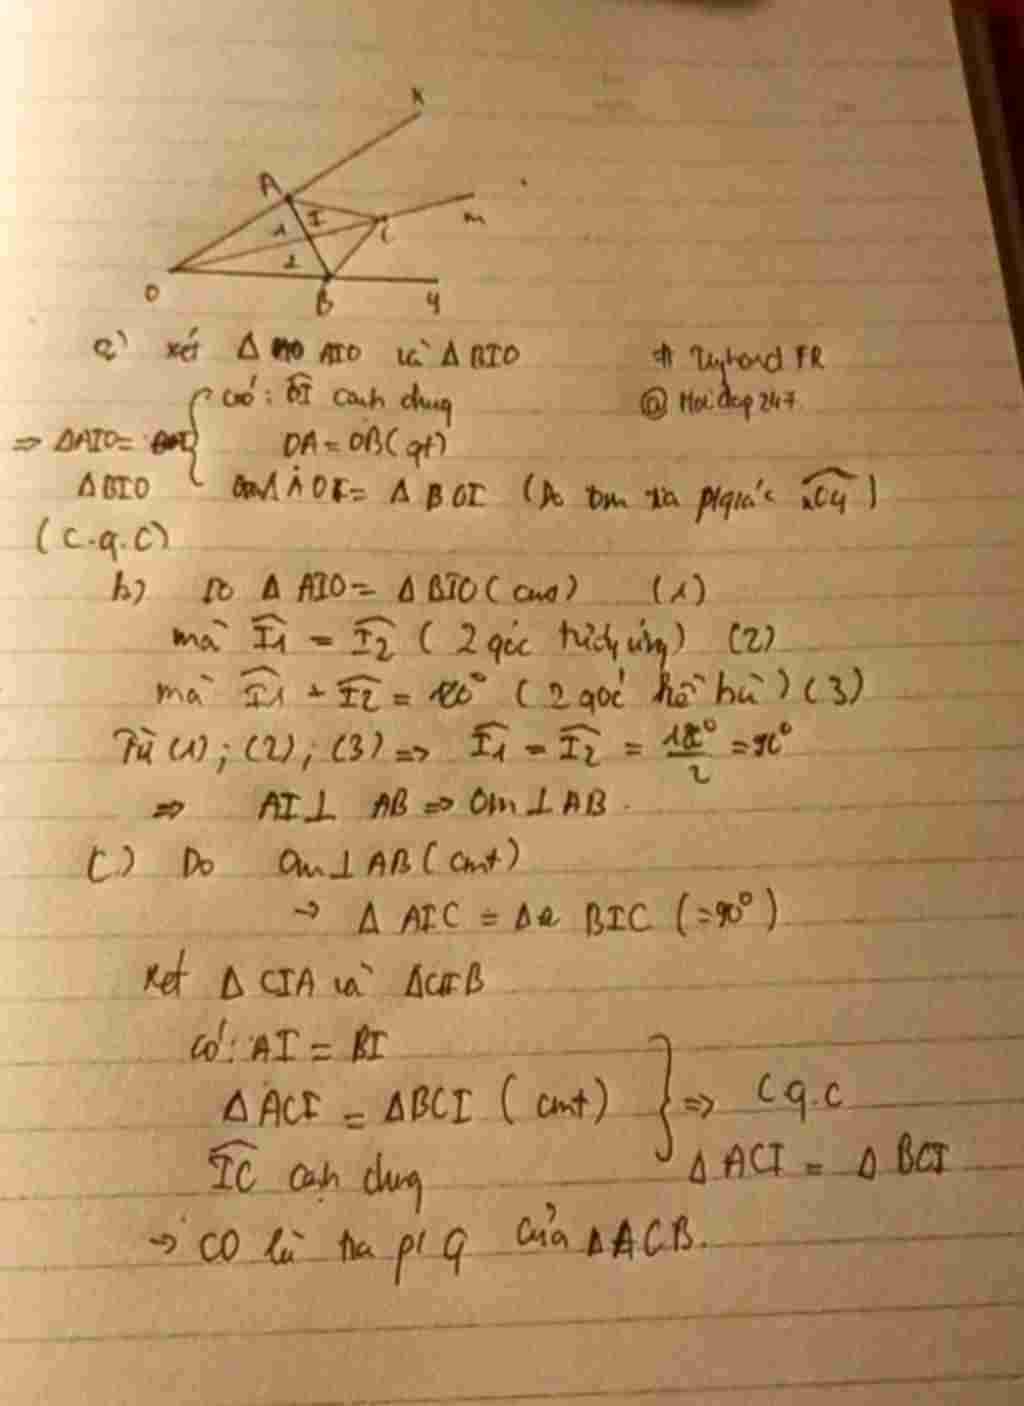 x
A
I
m
1
C
2
O
B
y
a) xét Δ AIO và Δ BIO
# FR
có: OI cạnh chung
@ Hoidap247.
⇒ ΔAIO =
OA = OB (gt)
ΔBIO
AOI = Δ BOI (Do Om là p/giác xOy)
(c.g.c)
b) Do Δ AIO = Δ BIO (cma) (1)
mà I1 = I2 (2 góc tương ứng) (2)
mà I1 + I2 = 180° (2 góc kề bù) (3)
Từ (1); (2); (3) => I1 = I2 = 180°/2 = 90°
⇒ AI ⊥ AB => Om ⊥ AB.
C) Do Om ⊥ AB (cmt)
→ Δ AIC = Δ BIC (=90°)
Xét Δ CIA và ΔCIB
có: AI = BI
Δ ACI = ΔBCI (cmt)
=> C g.c
IC cạnh chung
Δ ACI = Δ BCI
→ CO là tia p/g của ΔACB.